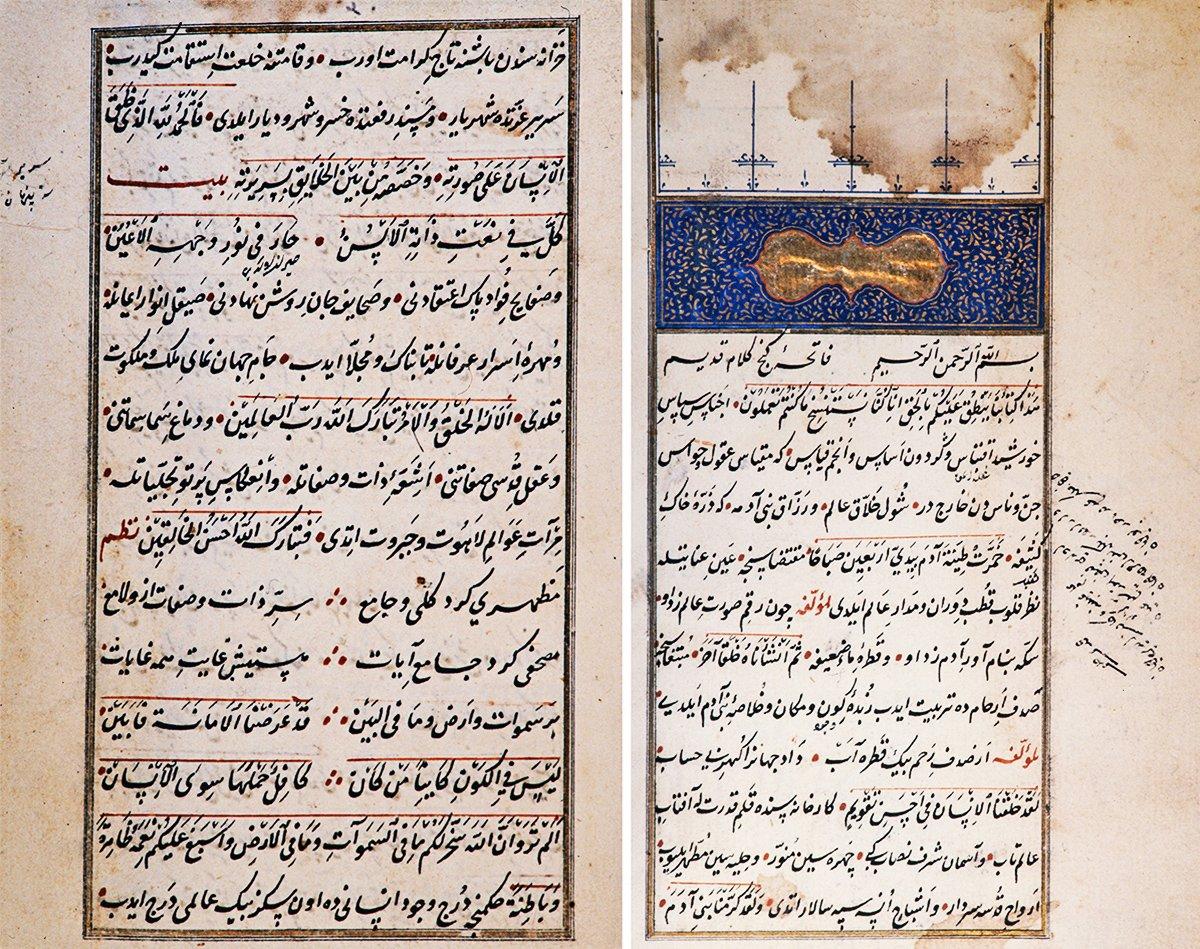 بسم الله الرحمن الرحیم فاتحۀ گنج کلام قدیم
هذا كتابنا ينطق عليكم بالحق انا كنا نستنسخ ما كنتم تعملون • اجناس سپاس
خورشید اقتباس و گردون اساس و انجم قیاس • که مقیاس عقول و حواس
جن و ناس دن خارج در • شول خلاق عالم • و رزاق بنی آدمه • که ذرۀ خاک
کثیفه • خمرت طينة آدم بيدي اربعين صباحا مقتضاسنجه • عین عنایتله
نظر قلوب قطب دوران و مدار عالم ایلدی لمؤلفه چون رقم صورت عالم زد او
سکه بنام آور آدم زد او • و قطرۀ ماء ضعیفه • ثم انشاناه خلقا آخر •
صدف ارحام ده تربیت ایدب زبدۀ کون و مکان و خلاصۀ بنی آدم ایلدی
لمؤلفه از صدف رحم بیک قطره آب • داد جهانرا گهر بی حساب
لقد خلقنا الانسان في احسن تقويم • کارخانه سنده قلم قدرت له آفتاب
عالم تاب • و آسمان شرف نصاب کبی • چهره سین منور • و حلیه سین مطهر ایلیوب
ارواح قدسه سردار • و اشباح انسه سپه سالار اتدی • ولقد كرمنا بني آدم •
خزانه سندن باشنه تاج کرامت اورب • و قامتنه خلعت استقامت کیدرب •
سریر عزتده شهریار • و مسند رفعتده خسرو شهر و دیار ایلدی • فالحمد لله الذي خلق
الانسان على صورته • وخصصه من بين الخلايق بسريرته بیت
كل في نعت ذاته الالسن • حار في نور وجهه الاعين
و صفایح فواد پاک اعتقادنی • و صحایف جان روشن نهادنی • صیقل انوار ایمانله
و مهرۀ اسرار عرفانله تابناک و مجلا ایدب • جام جهان نمای ملک و ملکوت
قلدی • الا له الخلق والامر تبارك الله رب العالمين • و دماغ سما سماتنی
و عقل قدسی صفاتنی • اشعۀ ذات و صفاتله • و انعکاس پرتو تجلیاتله
مرآت عوالم لاهوت و جبروت اتدی • فتبارك الله احسن الخالقين نظم
مظهری کرد کلی و جامع ∴ سر ذات و صفات ازو لامع
مصحفی کرد جامع آیات ∴ هستیش غایت همه غایات
بر سموات و ارض و ما فی البین ∴ قد عرضنا الامانة فابين
ليس في الكون كاينا من كان ∴ كافل حملها سوى الانسان
الم تروا ان الله سخر لكم ما في السموات وما في الارض واسبغ عليكم نعمه ظاهرة
وباطنة حکمنجه درج وجود انسانی ده اون سکز بیک عالمی درج ایدب